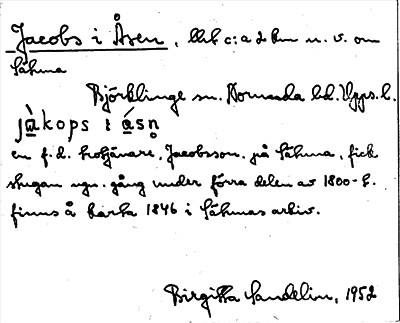 Jacobs i Åsen, litet c:a 2 km n. v. om
Sähma
Björklinge sn. Norunda hd. Upps. l.
jàkops i ásn̥
en f. d. krotjänare, Jacobsson, på Sähma, fick
stugan ngn. gång under förra delen av 1800-t.
finns å karta 1846 i Sähmas arkiv.
Birgitta Sandelin, 1952